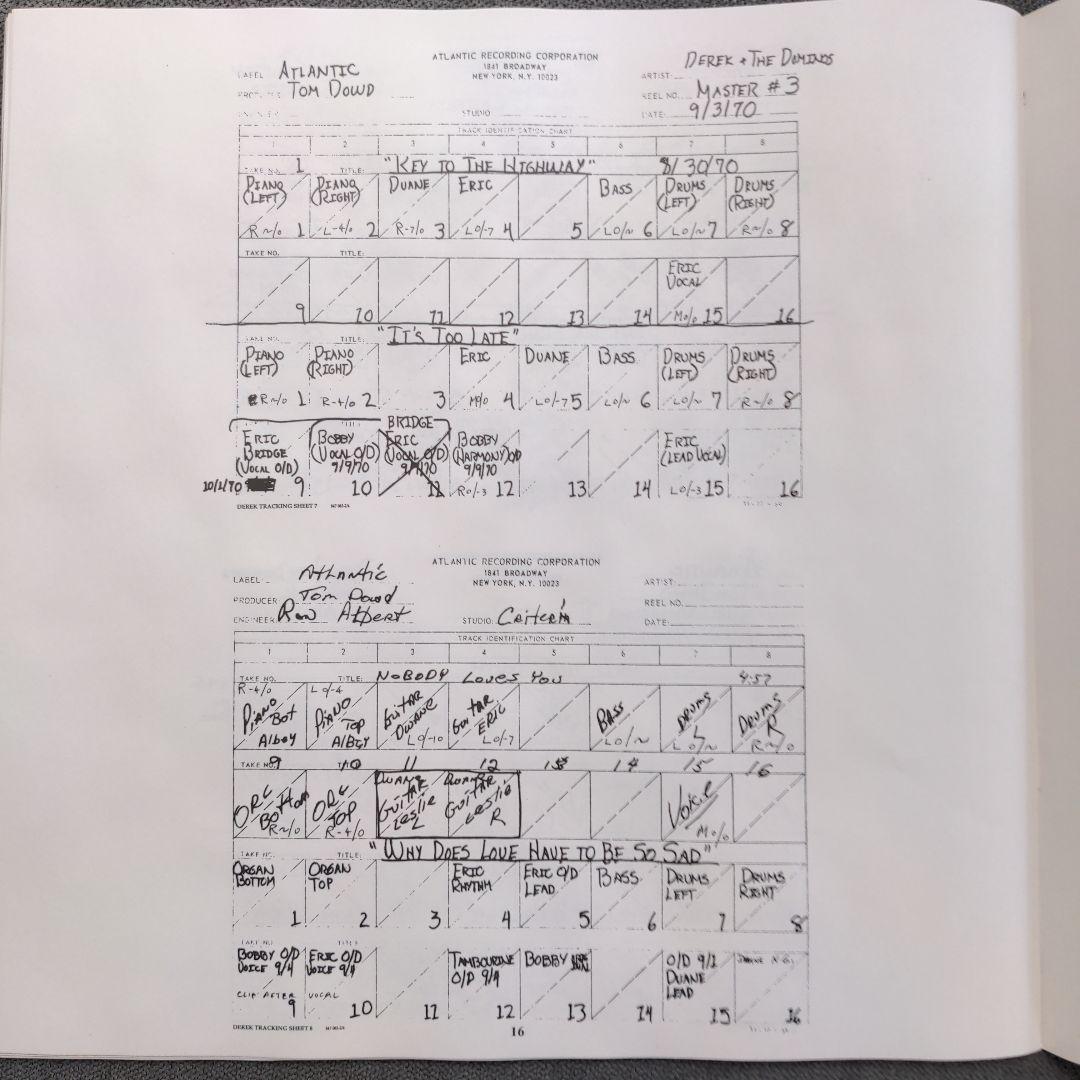 ATLANTIC RECORDING CORPORATION
1841 BROADWAY
NEW YORK, N.Y. 10023
LABEL ATLANTIC
TOM DOWD
STUDIO
ARTIST: DEREK + THE DOMINOS
REEL NO. MASTER # 3
DATE: 9/3/70
TRACK IDENTIFICATION CHART
1 2 3 4 5 6 7 8
TAKE NO. 1 TITLE: "KEY TO THE HIGHWAY" 8/30/70
PIANO (LEFT) PIANO (RIGHT) DUANE ERIC BASS DRUMS (LEFT) DRUMS (RIGHT)
1 2 3 4 5 6 7 8
TAKE NO. TITLE:
ERIC VOCAL
9 10 11 12 13 14 15 16
TAKE NO. TITLE: "IT'S TOO LATE"
PIANO (LEFT) PIANO (RIGHT) ERIC DUANE BASS DRUMS (LEFT) DRUMS (RIGHT)
1 2 3 4 5 6 7 8
BRIDGE
ERIC BRIDGE (VOCAL O/D) BOBBY (VOCAL O/D) 9/9/70 ERIC (VOCAL O/D) BOBBY (HARMONY) O/D 9/9/70 ERIC (LEAD VOCAL)
10/2/70 9 10 11 12 13 14 15 16
DEREK TRACKING SHEET 7 847 083-2A
ATLANTIC RECORDING CORPORATION
1841 BROADWAY
NEW YORK, N.Y. 10023
LABEL Atlantic
PRODUCER Tom Dowd
ENGINEER Ron Albert
STUDIO: Criteria
ARTIST:
REEL NO.
DATE:
TRACK IDENTIFICATION CHART
1 2 3 4 5 6 7 8
TAKE NO. TITLE: NOBODY LOVES YOU 4:57
PIANO Bot Alboy PIANO TOP GUITAR DWANE GUITAR ERIC BASS DRUMS L DRUMS R
TAKE NO. 9 10 11 12 13 14 15 16
ORG BOTTOM ORG TOP DUANE GUITAR Leslie L DUANE GUITAR Leslie R Voice
TAKE NO. TITLE: "WHY DOES LOVE HAVE TO BE SO SAD"
ORGAN BOTTOM ORGAN TOP ERIC RHYTHM ERIC O/D LEAD BASS DRUMS LEFT DRUMS RIGHT
1 2 3 4 5 6 7 8
TAKE NO. TITLE
BOBBY O/D VOICE 9/4 ERIC O/D VOICE 9/4 TAMBOURINE O/D 9/4 BOBBY O/D 9/2 DUANE LEAD
CLIP AFTER VOCAL
9 10 11 12 13 14 15 16
DEREK TRACKING SHEET 8 847 083-2A
16